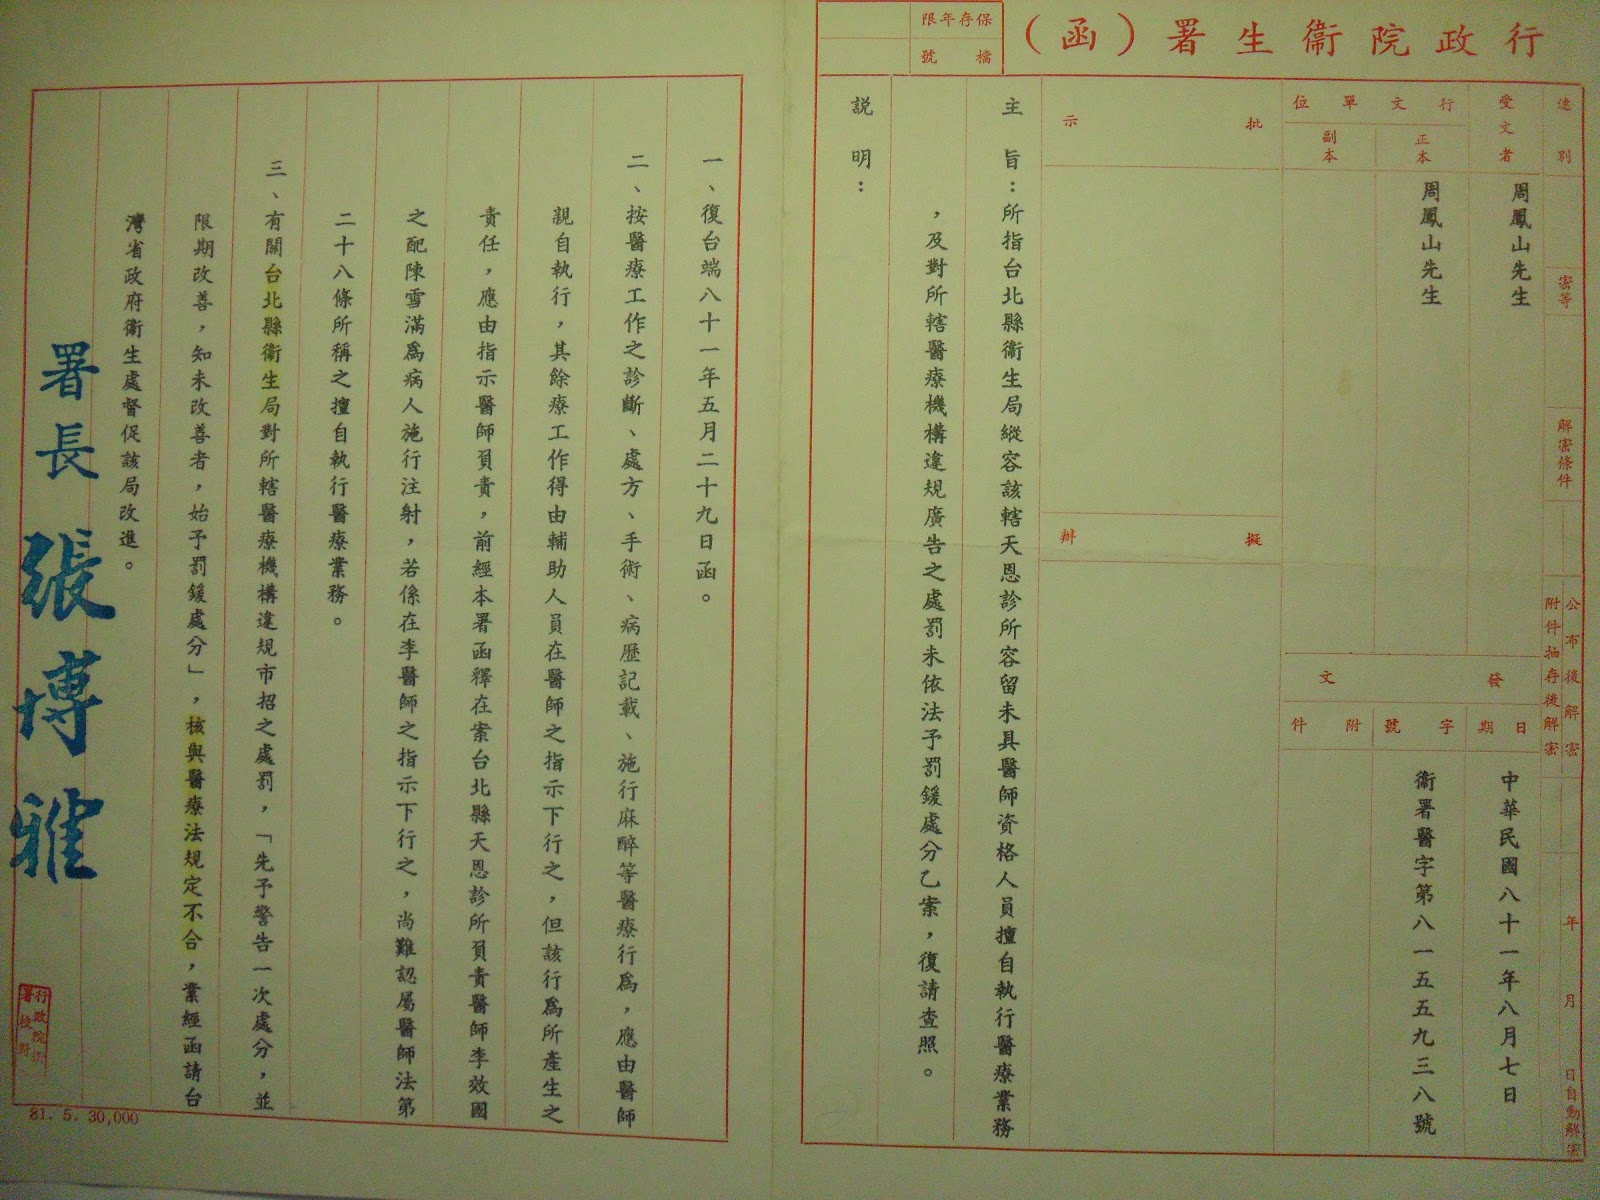 行政院衞生署（函）
保存年限
檔號
速別
密等
解密條件
公布後解密
附件抽存後解密
年月日自動解密
受文者
周鳳山先生
行文單位
正本
周鳳山先生
副本
發文
日期
中華民國八十一年八月七日
字號
衞署醫字第八一五五九三八號
附件
批示
擬辦
主旨：所指台北縣衞生局縱容該轄天恩診所容留未具醫師資格人員擅自執行醫療業務
，及對所轄醫療機構違規廣告之處罰未依法予罰鍰處分乙案，復請查照。
説明：
一、復台端八十一年五月二十九日函。
二、按醫療工作之診斷、處方、手術、病歷記載、施行麻醉等醫療行爲，應由醫師
親自執行，其餘療工作得由輔助人員在醫師之指示下行之，但該行爲所產生之
責任，應由指示醫師負責，前經本署函釋在案台北縣天恩診所負責醫師李效國
之配陳雪滿爲病人施行注射，若係在李醫師之指示下行之，尚難認屬醫師法第
二十八條所稱之擅自執行醫療業務。
三、有關台北縣衞生局對所轄醫療機構違規市招之處罰，「先予警告一次處分，並
限期改善，知未改善者，始予罰鍰處分」，核與醫療法規定不合，業經函請台
灣省政府衞生處督促該局改進。
署長 張博雅
行政院衞
署校對
81. 5. 30,000